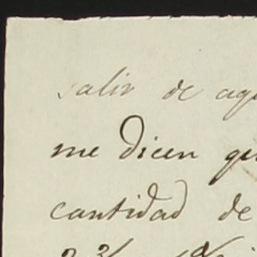 salir de aqu
me dicen qu
cantidad de